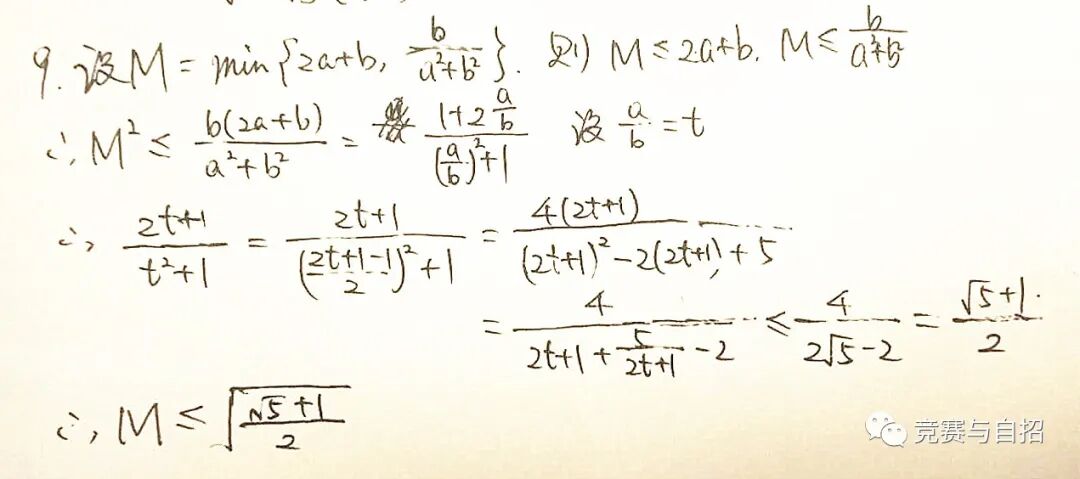 9. 设M = min{2a+b, b/(a²+b²)}. 则 M ≤ 2a+b. M ≤ b/(a²+b²)
∴ M² ≤ b(2a+b)/(a²+b²) = (1+2a/b)/((a/b)²+1) 设 a/b = t
∴, (2t+1)/(t²+1) = (2t+1)/(((2t+1-1)/2)²+1) = 4(2t+1)/((2t+1)²-2(2t+1)+5)
= 4/(2t+1+5/(2t+1)-2) ≤ 4/(2√5-2) = (√5+1)/2.
∴, M ≤ √((√5+1)/2)
竞赛与自招